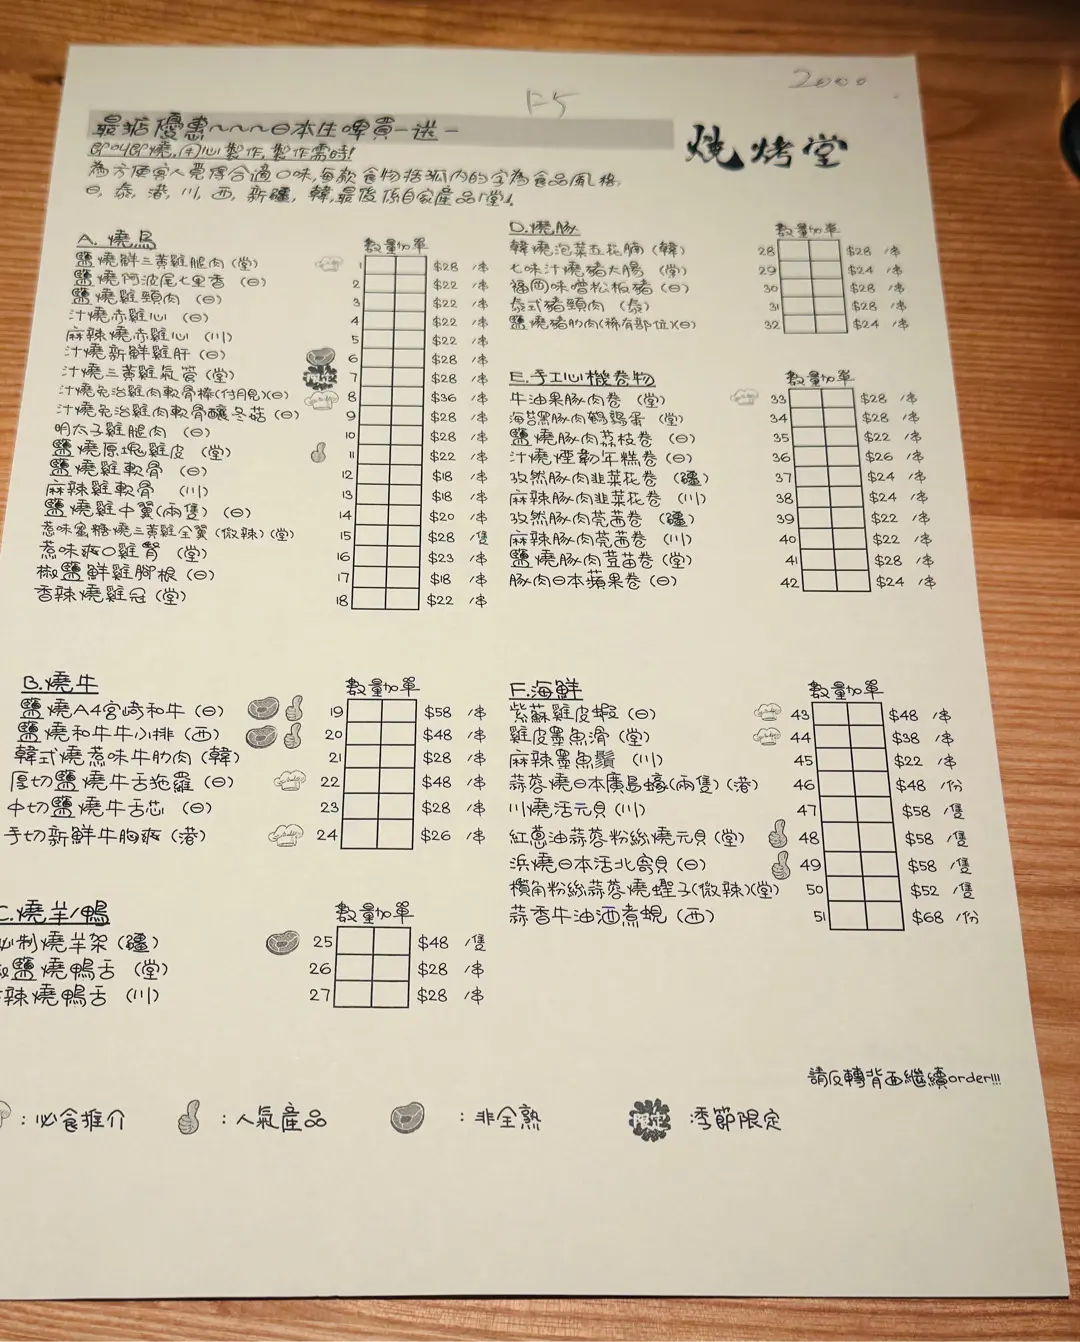 2000
F5
最抵優惠~~~日本生啤買一送一
即叫即燒,用心製作,製作需時!
燒烤堂
為方便客人覓得合適口味,每款食物括弧內的字為食品風格,
日, 泰, 港, 川, 西, 新疆, 韓,最後係自家產品「堂」.
A. 燒鳥 數量 加單
鹽燒鮮三黃雞腿肉 (堂) 1 $28 /串
鹽燒阿波尾七里香 (日) 2 $22 /串
鹽燒雞頸肉 (日) 3 $22 /串
汁燒赤雞心 (日) 4 $22 /串
麻辣燒赤雞心 (川) 5 $22 /串
汁燒新鮮雞肝 (日) 6 $28 /串
汁燒三黃雞氣管 (堂) 限定 7 $28 /串
汁燒免治雞肉軟骨棒(付月見)(日) 8 $36 /串
汁燒免治雞肉軟骨釀冬菇 (日) 9 $28 /串
明太子雞腿肉 (日) 10 $28 /串
鹽燒原塊雞皮 (堂) 11 $22 /串
鹽燒雞軟骨 (日) 12 $18 /串
麻辣雞軟骨 (川) 13 $18 /串
鹽燒雞中翼(兩隻) (日) 14 $20 /串
惹味蜜糖燒三黃雞全翼 (微辣) (堂) 15 $28 /隻
惹味爽口雞腎 (堂) 16 $23 /串
椒鹽鮮雞腳根 (日) 17 $18 /串
香辣燒雞冠 (堂) 18 $22 /串
B.燒牛 數量 加單
鹽燒A4宮崎和牛 (日) 19 $58 /串
鹽燒和牛牛小排 (西) 20 $48 /串
韓式燒惹味牛肋肉 (韓) 21 $28 /串
厚切鹽燒牛舌拖羅 (日) 22 $48 /串
中切鹽燒牛舌芯 (日) 23 $28 /串
手切新鮮牛胸爽 (港) 24 $26 /串
C.燒羊/鴨 數量 加單
秘制燒羊架 (疆) 25 $48 /隻
椒鹽燒鴨舌 (堂) 26 $28 /串
辣燒鴨舌 (川) 27 $28 /串
D.燒豚 數量 加單
韓燒泡菜五花腩 (韓) 28 $28 /串
七味汁燒豬大腸 (堂) 29 $24 /串
福岡味噌松板豬 (日) 30 $28 /串
泰式豬頸肉 (泰) 31 $28 /串
鹽燒豬肋肉(稀有部位)(日) 32 $24 /串
E.手工心機卷物 數量 加單
牛油果豚肉卷 (堂) 33 $28 /串
海苔黑豚肉鵪鶉蛋 (堂) 34 $28 /串
鹽燒豚肉荔枝卷 (日) 35 $22 /串
汁燒煙韌年糕卷 (日) 36 $26 /串
孜然豚肉韭菜花卷 (疆) 37 $24 /串
麻辣豚肉韭菜花卷 (川) 38 $24 /串
孜然豚肉芫茜卷 (疆) 39 $22 /串
麻辣豚肉芫茜卷 (川) 40 $22 /串
鹽燒豚肉荳苗卷 (堂) 41 $28 /串
豚肉日本蘋果卷 (日) 42 $24 /串
F.海鮮 數量 加單
紫蘇雞皮蝦 (日) 43 $48 /串
雞皮墨魚滑 (堂) 44 $38 /串
麻辣墨魚鬚 (川) 45 $22 /串
蒜蓉燒日本廣島蠔(兩隻) (港) 46 $48 /份
川燒活元貝 (川) 47 $58 /隻
紅蔥油蒜蓉粉絲燒元貝 (堂) 48 $58 /隻
浜燒日本活北寄貝 (日) 49 $58 /隻
欖角粉絲蒜蓉燒蟶子(微辣)(堂) 50 $52 /隻
蒜香牛油酒煮蜆 (西) 51 $68 /份
請反轉背面繼續order!!!
: 必食推介 : 人氣產品 : 非全熟 限定 季節限定